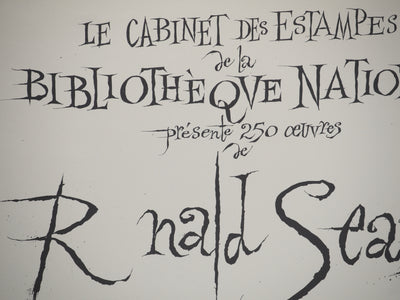 LE CABINET DES ESTAMPES
de la
BIBLIOTHÈQVE NATIO
présente 250 œuvres
de
Rnald Sea